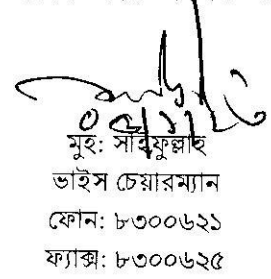 মুহ: সাইফুল্লাহ
ভাইস চেয়ারম্যান
ফোন: ৮৩০০৬২১
ফ্যাক্স: ৮৩০০৬২৫